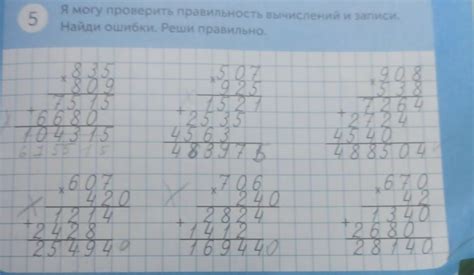 5 Я могу проверить правильность вычислений и записи.
Найди ошибки. Реши правильно.
× 835 × 507 × 908
809 925 538
+ 7515 1521 + 7264
6680 + 2535 2724
104315 4563 4540
483975 488504
× 607 × 706 × 670
420 240 42
+ 1214 + 2824 + 1340
2428 1412 2680
254940 169440 28140